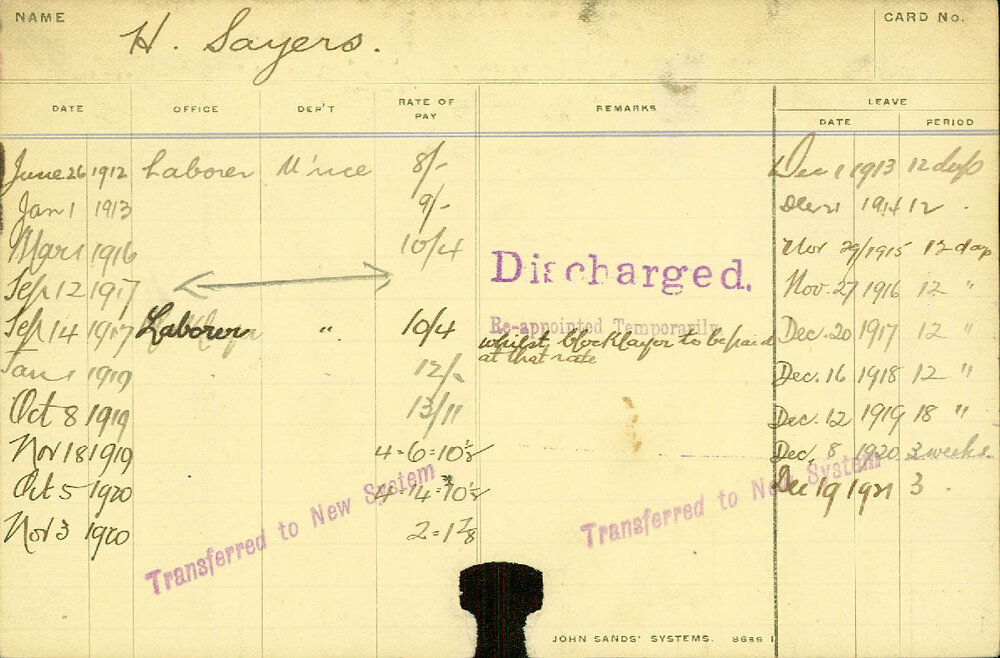 NAME H. Sayers. CARD No.
DATE OFFICE DEP'T RATE OF PAY REMARKS LEAVE
DATE PERIOD
June 26 1912 Laborer M'nce 8/- Dec 1 1913 12 days
Jan 1 1913 9/- Dec 21 1914 12
Mar 1 1916 10/4 Nov 29/1915 12 days
Sep 12 1917 Discharged. Nov. 27 1916 12 "
Sep 14 1917 Laborer " 10/4 Re-appointed Temporarily Dec. 20 1917 12 "
whilst blocklayer to be paid
at that rate
Jan 1 1919 12/- Dec. 16 1918 12 "
Oct 8 1919 13/11 Dec. 12 1919 18 "
Nov 18 1919 4=6=10½ Dec. 8 1920 3 weeks.
Oct 5 1920 4=14=10½ Dec 19 1921 3
Nov 3 1920 2=1⅞
Transferred to New System
Transferred to New System
JOHN SANDS' SYSTEMS.